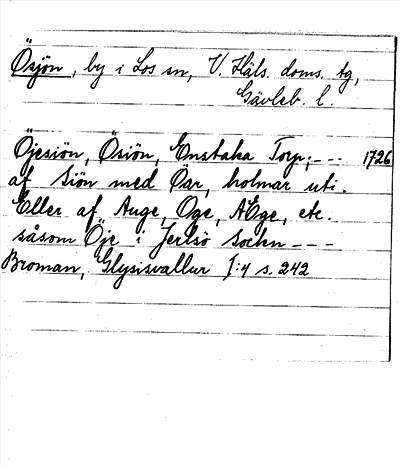 Ösjön, by i Los sn, V. Häls. doms. tg,
Gävleb. l.
Öjesiön, Ösiön, Enstaka Torp; - - - 1726
af Siön med Öar, holmar uti.
Eller af Auge, Oge, AEge, etc.
såsom Öje i Jerlsö Sockn - - -
Broman, Glysisvallur I:4 s. 242